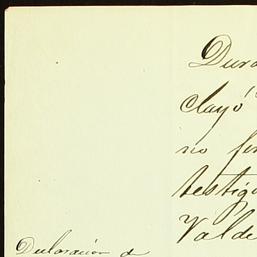 Dura
clayó
no fir
testigo
Valde
Declaración de